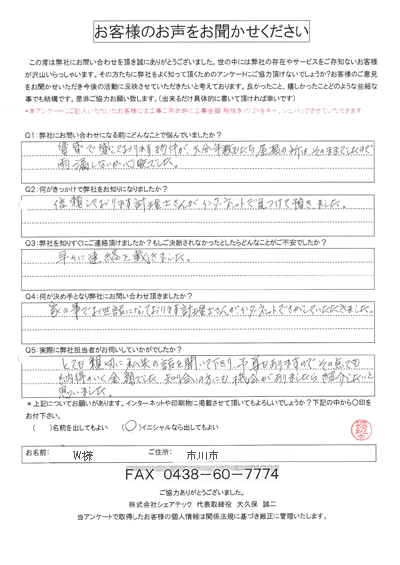 お客様のお声をお聞かせください
この度は弊社にお問い合わせを頂き誠にありがとうございました。世の中には弊社の存在やサービスをご存知ないお客様
が沢山いらっしゃいます。その方たちに弊社をよく知って頂くためのアンケートにご協力頂けないでしょうか?お客様のご意見
をお聞かせいただき今後の活動に反映させていただきたいと考えております。良かったこと、嬉しかったことどのような些細な
事でも結構です。是非ご協力お願い致します。(出来るだけ具体的に書いて頂ければ幸いです)
*本アンケートにご記入いただいたお客様には工事ご用命時に工事金額 税抜き の2%をキャッシュバックさせていただきます
Q1:弊社にお問い合わせになる前どんなことで悩んでいましたか?
賃貸で貸しております物件が、大分年数もたち屋根の所はそのままでしたので
雨漏しないか心配でした。
Q2:何がきっかけで弊社をお知りになりましたか?
信頼しております計理士さんがインターネットで見つけて頂きました。
Q3:弊社を知りすぐにご連絡頂けますか?もしご決断されなかったとしたらどんなことがご不安でしたか?
早々に連絡を戴きました。
Q4:何が決め手となり弊社にお問い合わせ頂きましたか?
家の事でお世話になっております計理士さんがインターネットでさがしていただきました。
Q5:実際に弊社担当者がお伺いしていかがでしたか?
とても親切に私共の話を聞いて下さり、予算もありますのでその点でも
納得のいく金額でした。知り合いの方にも機会がありましたら紹介したいと
思いました。
*上記についてお願いがあります。インターネットや印刷物に掲載させて頂いてもよろしいでしょうか?下記の中から〇印を
お付下さい。
( )名前を出してもよい (〇)イニシャルなら出してもよい
お名前: W様 ご住所: 市川市
FAX 0438-60-7774
ご協力ありがとうございました。
株式会社シェアテック 代表取締役 大久保 誠二
当アンケートで取得したお客様の個人情報は関係法規に基づき厳正に管理いたします。